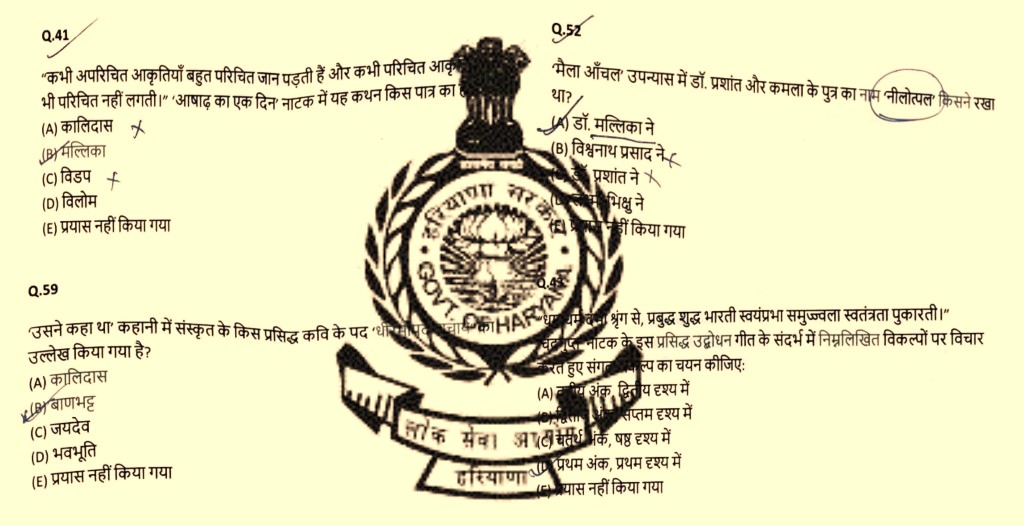 Q.41
“कभी अपरिचित आकृतियाँ बहुत परिचित जान पड़ती हैं और कभी परिचित
भी परिचित नहीं लगती।” ‘आषाढ़ का एक दिन’ नाटक में यह कथन किस पात्र का
(A) कालिदास
(B) मल्लिका
(C) विडप
(D) विलोम
(E) प्रयास नहीं किया गया
Q.52
‘मैला आँचल’ उपन्यास में डॉ. प्रशांत और कमला के पुत्र का नाम ‘नीलोत्पल’ किसने रखा
था?
(A) डॉ. मल्लिका ने
(B) विश्वनाथ प्रसाद ने
प्रशांत ने
भिक्षु ने
नहीं किया गया
Q.59
‘उसने कहा था’ कहानी में संस्कृत के किस प्रसिद्ध कवि के पद
उल्लेख किया गया है?
(A) कालिदास
(B) बाणभट्ट
(C) जयदेव
(D) भवभूति
(E) प्रयास नहीं किया गया
श्रृंग से, प्रबुद्ध शुद्ध भारती स्वयंप्रभा समुज्ज्वला स्वतंत्रता पुकारती।”
नाटक के इस प्रसिद्ध उद्बोधन गीत के संदर्भ में निम्नलिखित विकल्पों पर विचार
करते हुए का चयन कीजिए:
(A) अंक, द्वितीय दृश्य में
सप्तम दृश्य में
(C) चतुर्थ अंक, षष्ठ दृश्य में
प्रथम अंक, प्रथम दृश्य में
नहीं किया गया
हरियाणा सरकार
GOVT. OF HARYANA
लोक सेवा आयोग
हरियाणा